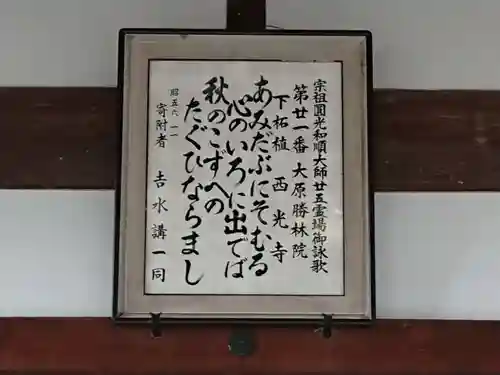 宗祖圓光和順大師廿五霊場御詠歌
第廿一番 大原勝林院
下柘植 西光寺
あみだぶにそむる
心のいろに出でば
秋のこずへの
たぐひならまし
昭五六 一一
寄附者 吉水講一同